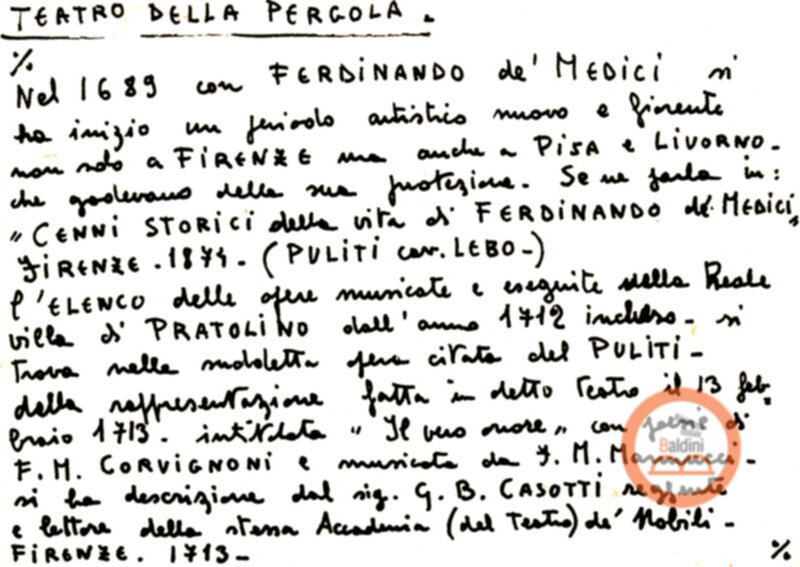 TEATRO DELLA PERGOLA.
%
Nel 1689 con FERDINANDO de' MEDICI si
ha inizio un periodo artistico nuovo e fiorente
non solo a FIRENZE ma anche a PISA e LIVORNO-
che godevano della sua protezione. Se ne parla in:
"CENNI STORICI della vita di FERDINANDO de' MEDICI"
FIRENZE. 1874- (PULITI cav. LEBO-)
l'ELENCO delle opere musicate e eseguite nella Reale
villa di PRATOLINO dall'anno 1712 incluso- si
trova nella suddetta opera citata del PULITI-
della rappresentazione fatta in detto teatro il 13 feb
braio 1713. intitolata " Il vero onore" con poesie di
F. M. CORVIGNONI e musicata da F. M. Mannucci-
si ha descrizione dal sig. G. B. CASOTTI reggente
e lettore della stessa Accademia (del Teatro) de' Nobili-
FIRENZE. 1713- %
Baldini